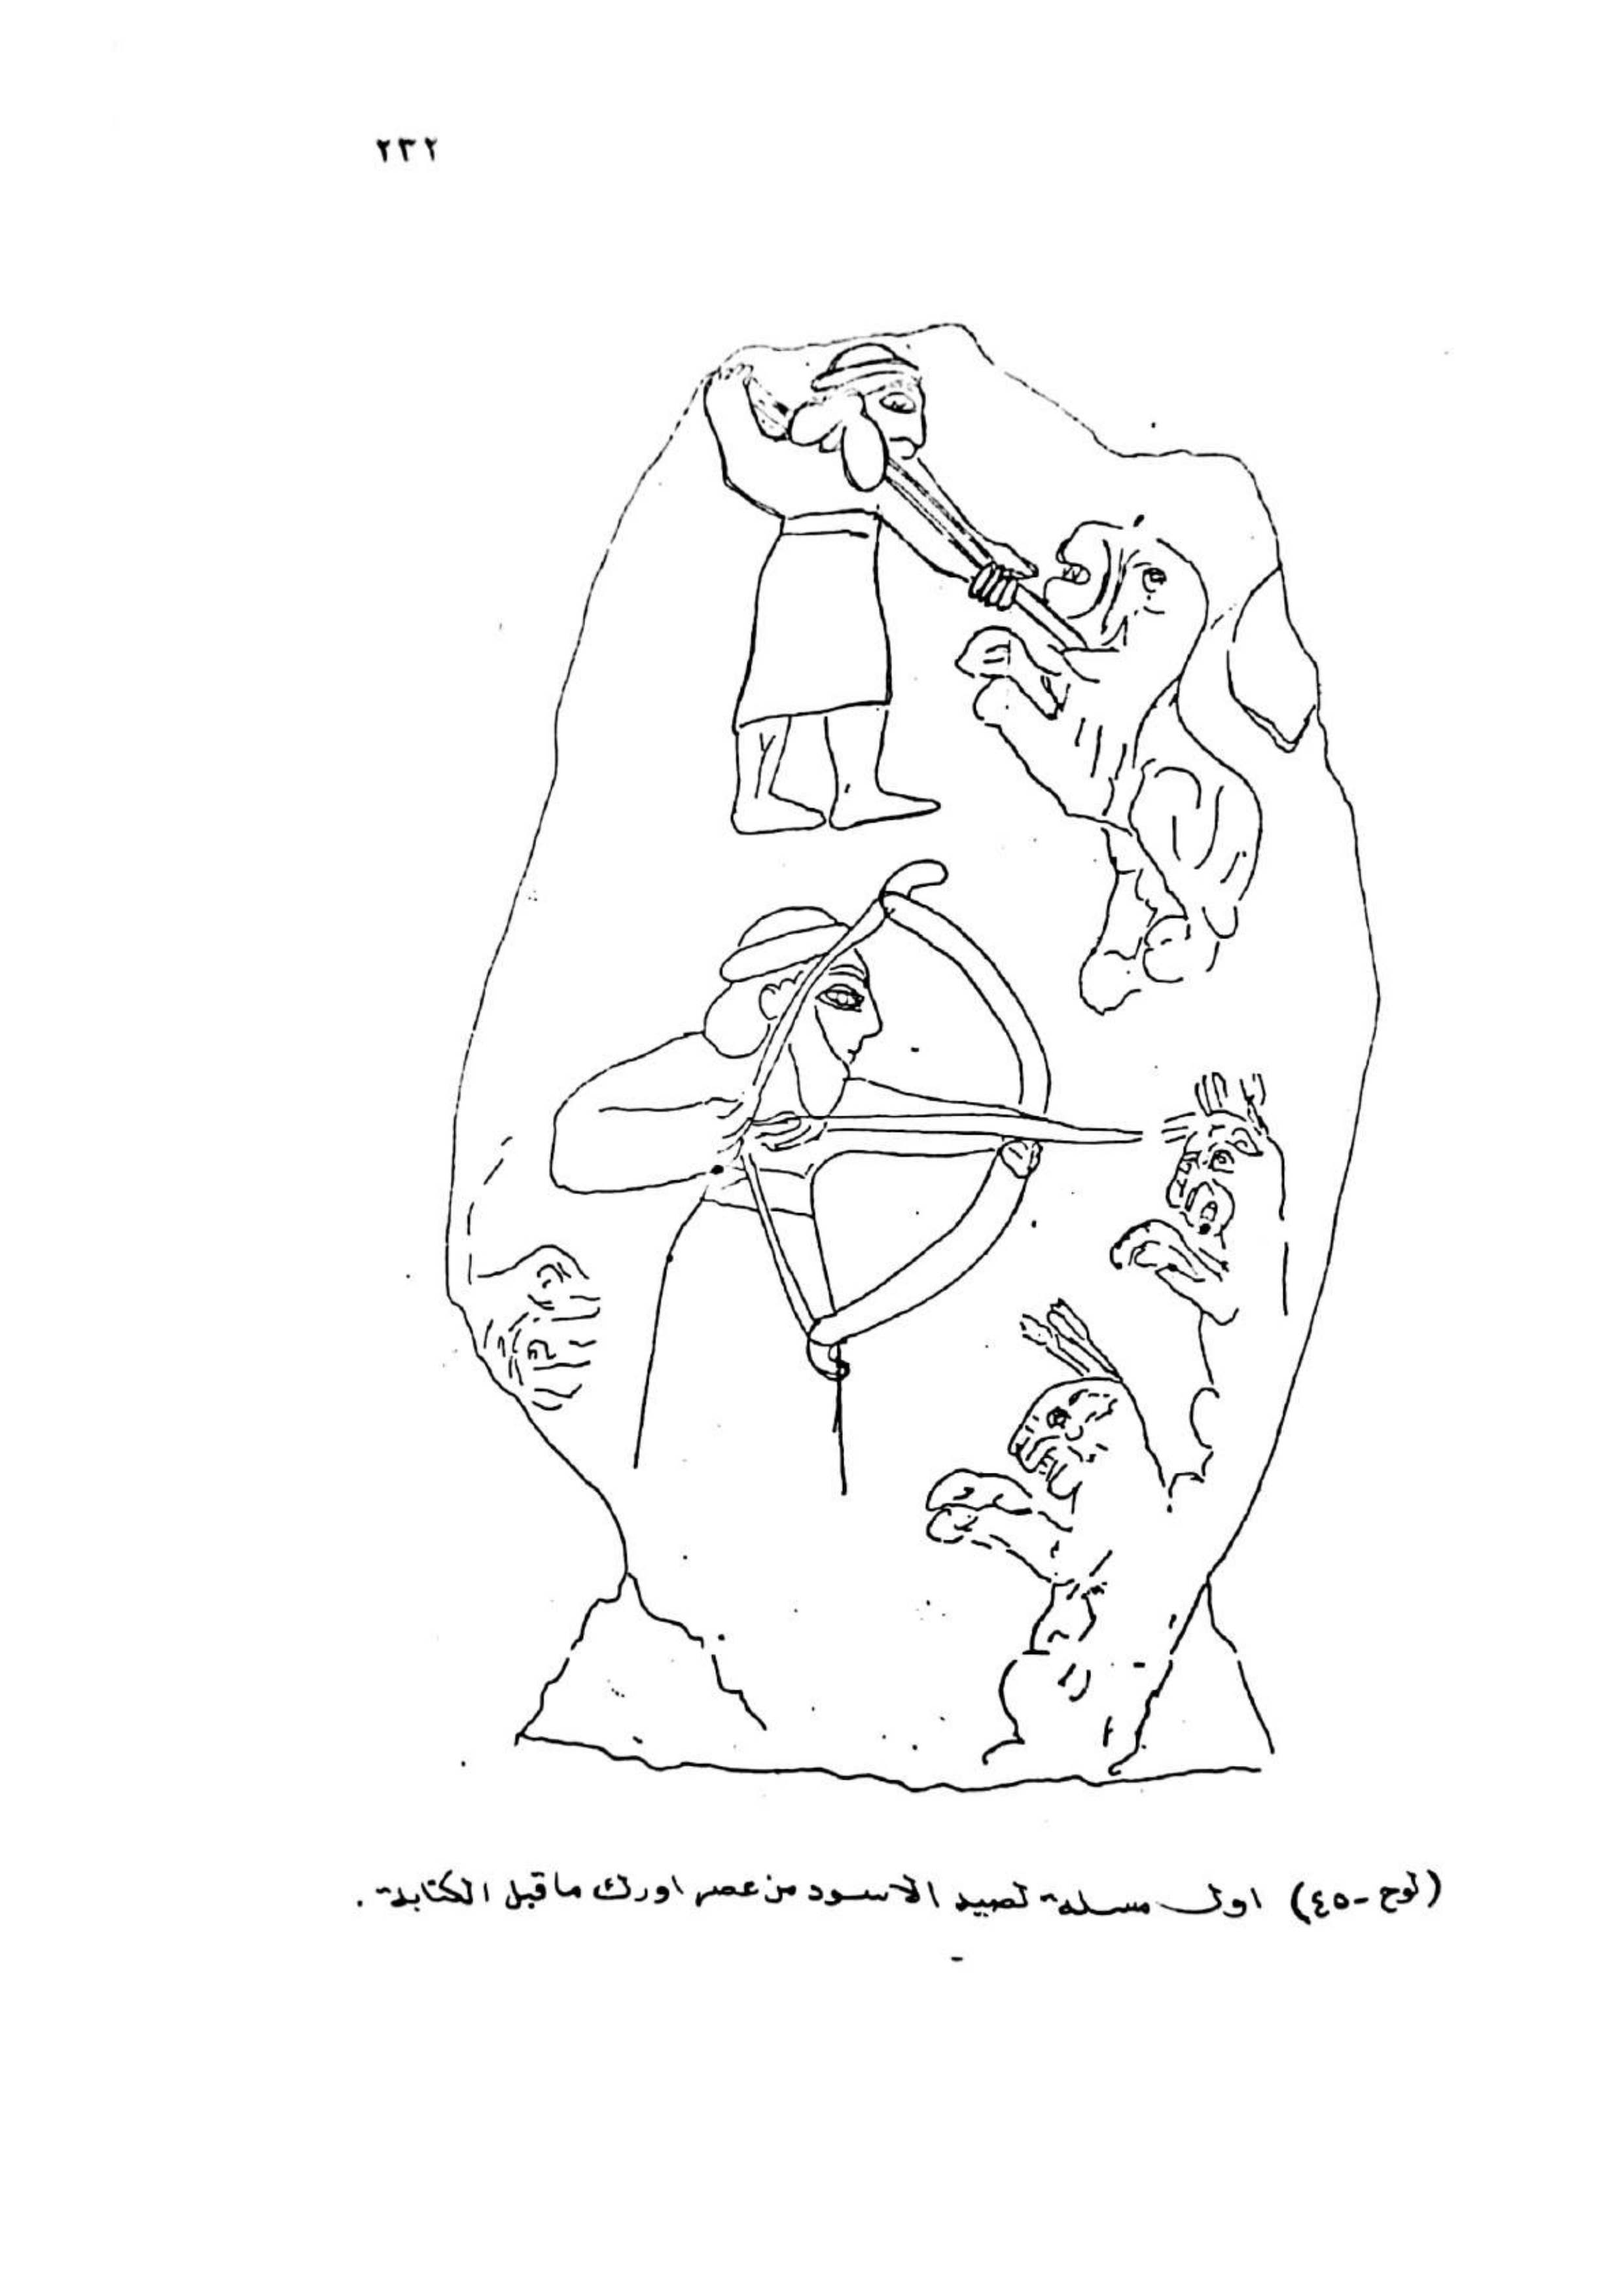 ٢٣٢
(لوح -٤٥) اول مسلة لصيد الاسود من عصر اورك ما قبل الكتابة .